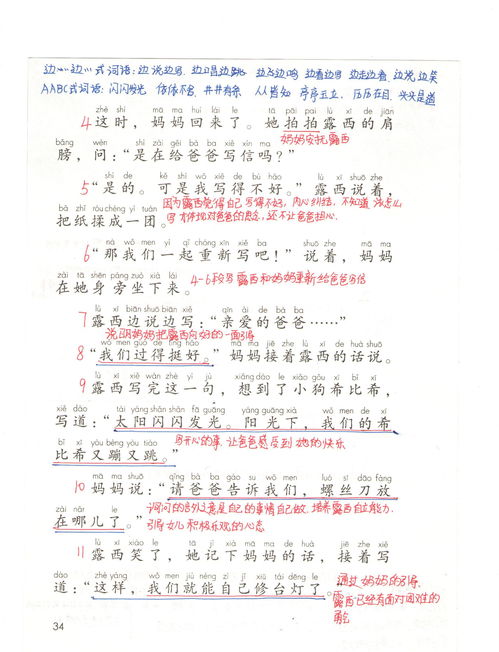 边…边…式词语：边说边写 边唱边跳 边飞边鸣 边看边写 边走边看 边说边笑
AABC式词语：闪闪发光 井井有条 人人皆知 历历在目 头头是道
zhè shí mā ma huí lái le tā pāi pāi lù xī de jiān
4 这时，妈妈回来了。她拍拍露西的肩
妈妈安抚露西
bǎng wèn shì zài gěi bà ba xiě xìn ma
膀，问：“是在给爸爸写信吗？”
shì de kě shì wǒ xiě de bù hǎo lù xī shuō zhe
5 “是的。可是我写得不好。”露西说着，
因为露西觉得自己写得不好，内心纠结，不知道该怎么
bǎ zhǐ róu chéng yì tuán
把纸揉成一团。
写才体现对爸爸的思念，还不让爸爸担心。
nà wǒ men yì qǐ chóng xīn xiě ba shuō zhe mā ma
6 “那我们一起重新写吧！”说着，妈妈
zài tā shēn páng zuò xià lái
在她身旁坐下来。
4-6段写露西和妈妈重新给爸爸写信
lù xī biān shuō biān xiě qīn ài de bà ba
7 露西边说边写：“亲爱的爸爸……”
说明妈妈把露西向好的一面引导
wǒ men guò de tǐng hǎo mā ma jiē zhe lù xī de huà shuō
8 “我们过得挺好。”妈妈接着露西的话说。
lù xī xiě wán zhè yí jù xiǎng dào le xiǎo gǒu xī bǐ xī
9 露西写完这一句，想到了小狗希比希，
xiě dào tài yáng shǎn shǎn fā guāng yáng guāng xià wǒ men de xī
写道：“太阳闪闪发光。阳光下，我们的希
bǐ xī yòu bèng yòu tiào
比希又蹦又跳。”
写开心的事，让爸爸感受到她的快乐
mā ma shuō qǐng bà ba gào su wǒ men luó sī dāo fàng
10 妈妈说：“请爸爸告诉我们，螺丝刀放
zài nǎr le
在哪儿了。”
自己的事情自己做，培养露西自立能力，
引导女儿积极乐观的心态
lù xī xiào le tā jì xià mā ma de huà jiē zhe xiě
11 露西笑了，她记下妈妈的话，接着写
dào zhè yàng wǒ men jiù néng zì jǐ xiū tái dēng le
道：“这样，我们就能自己修台灯了。”
通过妈妈的引导，
露西已经有面对困难的
勇气
34